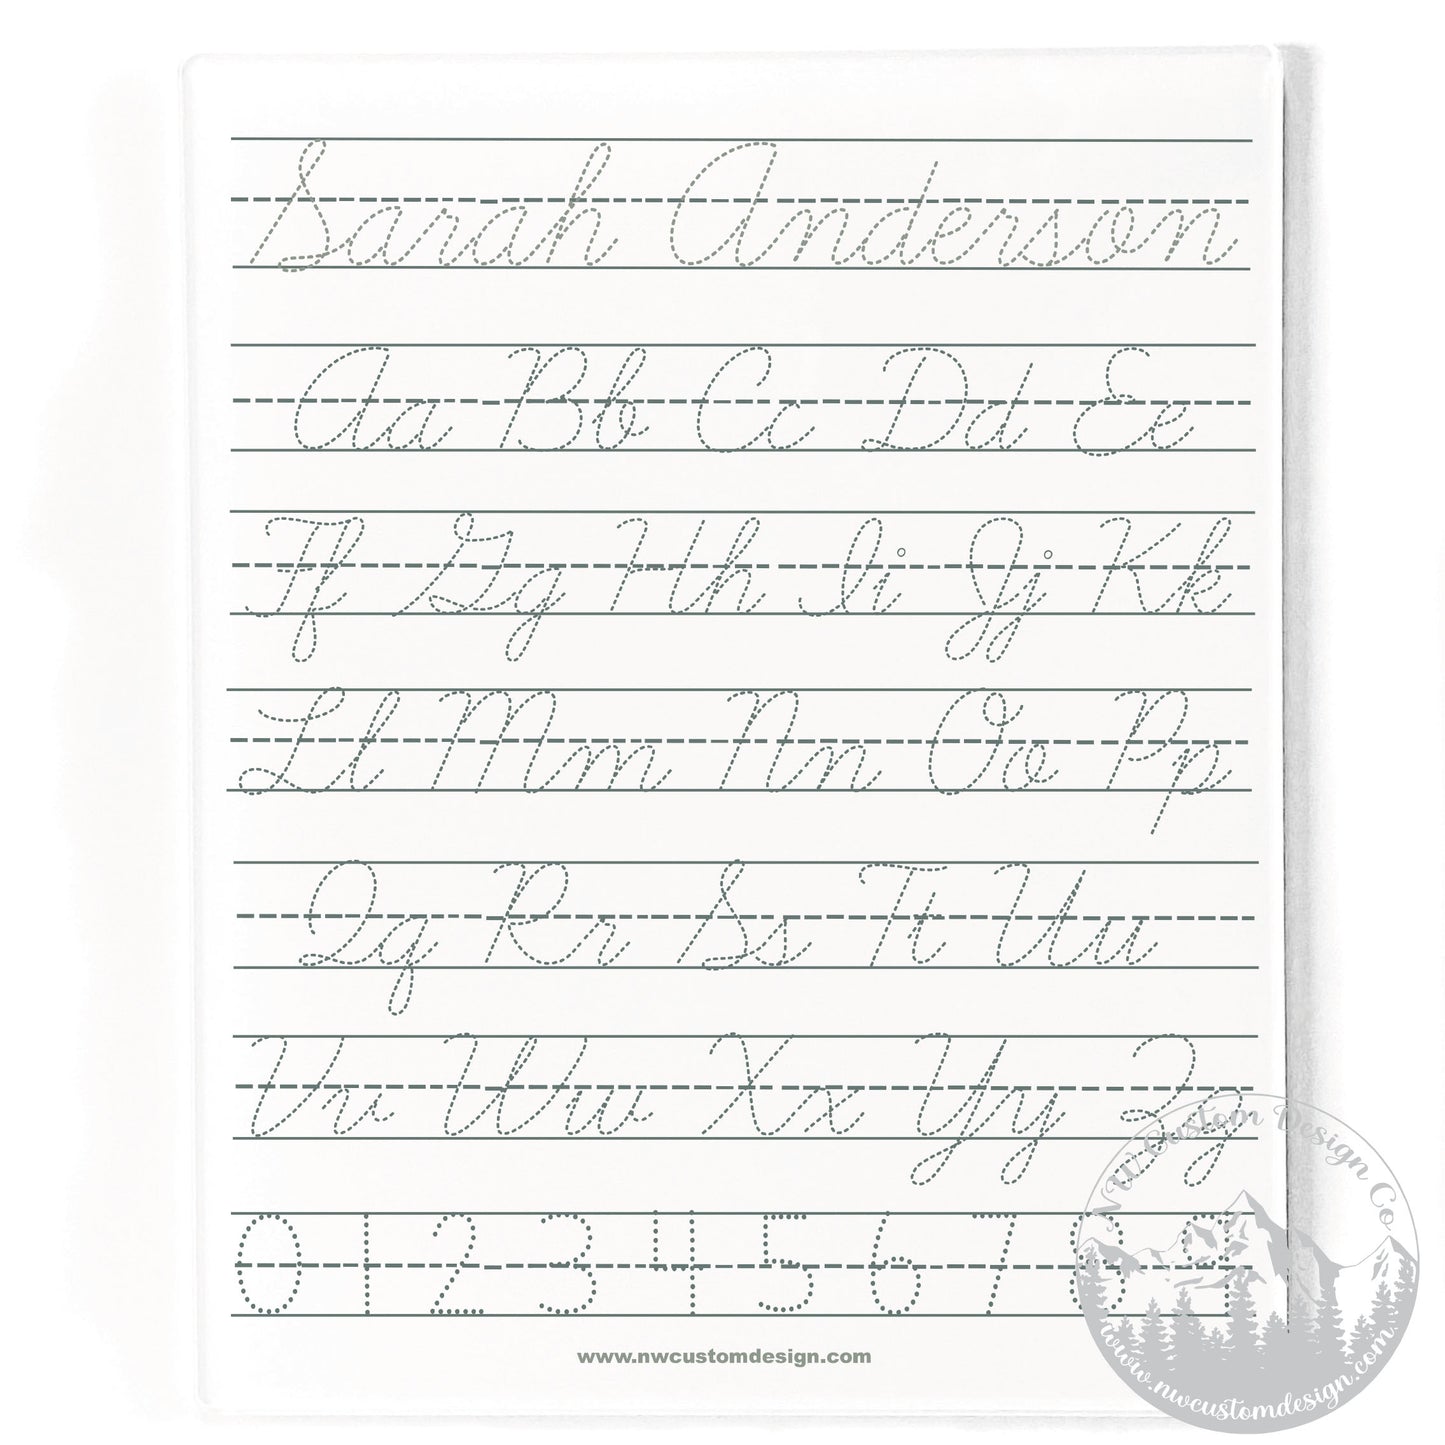 Sarah Anderson
Aa Bb Cc Dd Ee
Ff Gg Hh Ii Jj Kk
Ll Mm Nn Oo Pp
Qq Rr Ss Tt Uu
Vv Ww Xx Yy Zz
0 1 2 3 4 5 6 7 8 9
www.nwcustomdesign.com
NW Custom Design Co
www.nwcustomdesign.com